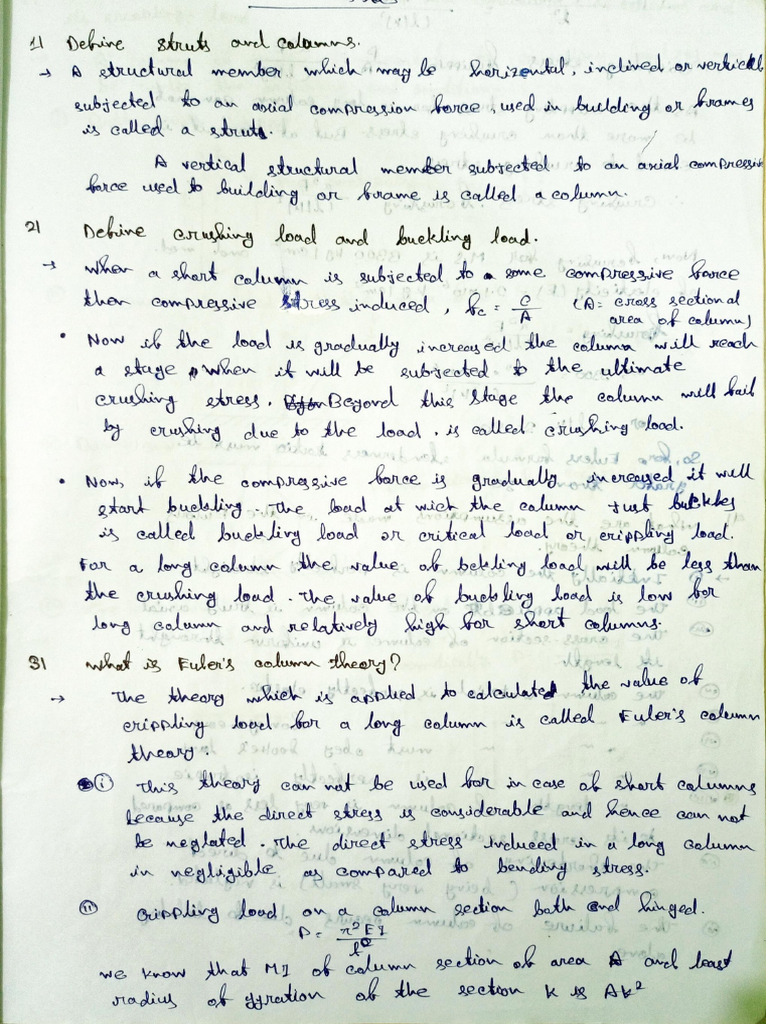 1) Define struts and columns.
→ A structural member which may be horizental, inclined or vertical
subjected to an axial compression force, used in building or frames
is called a strut.
A vertical structural member subjected to an axial compressive
force used to building or frame is called a column.
2) Define crushing load and buckling load.
→ When a short column is subjected to a some compressive force
then compressive stress induced, fc = C/A (A = cross sectional
area of column)
• Now if the load is gradually increased the column will reach
a stage, when it will be subjected to the ultimate
crushing stress. Beyond this stage the column will fail
by crushing due to the load, is called crushing load.
• Now, if the compressive force is gradually increased it will
start buckling. The load at wich the column just buckles
is called buckling load or critical load or crippling load.
For a long column the value of bckling load will be less than
the crushing load. The value of buckling load is low for
long column and relatively high for short columns.
3) What is Euler's column theory?
→ The theory which is applied to calculated the value of
crippling load for a long column is called Euler's column
theory.
(i) This theory can not be used for in case of short columns
because the direct stress is considerable and hence can not
be neglated. The direct stress induced in a long column
in negligible as compared to bending stress.
(ii) Crippling load on a column section both end hinged.
P = π²EI/l²
we know that MI of column section of area A and least
radius of gyration of the section k is Ak²